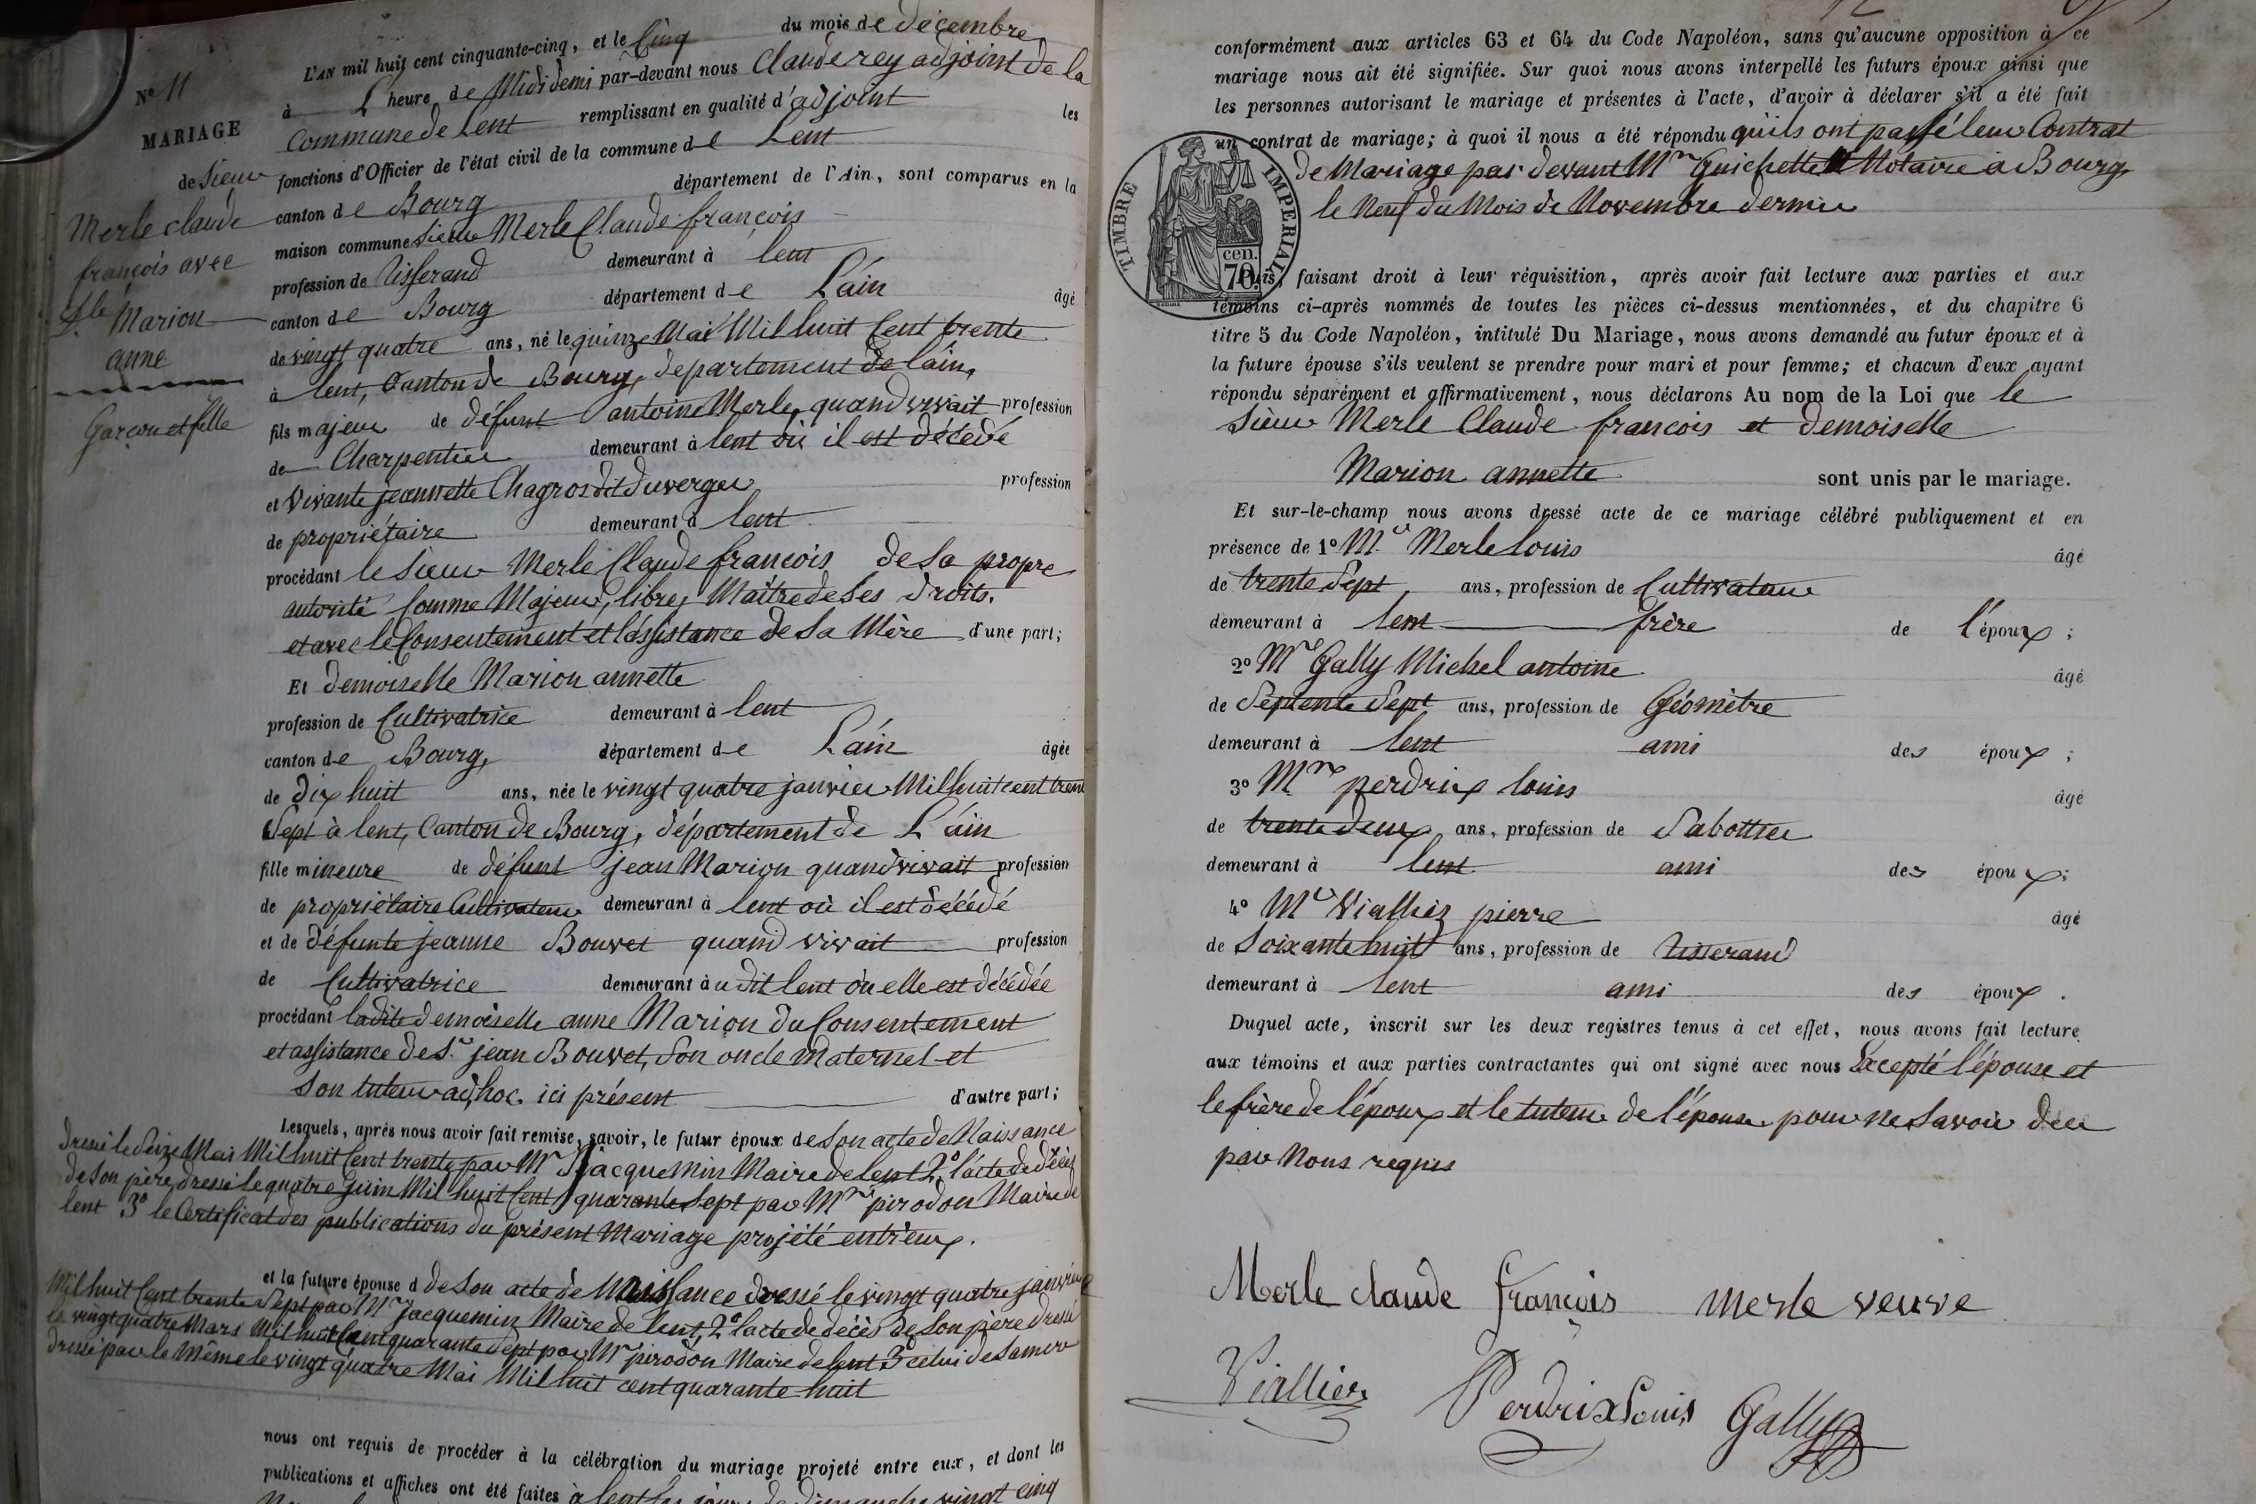 L'AN mil huit cent cinquante-cinq, et le Cinq du mois de décembre,
à L'heure de Midi demi par-devant nous Claude rey adjoint de la
Commune de Lent remplissant en qualité d'adjoint les
fonctions d'Officier de l'état civil de la commune de Lent
canton de Bourg département de l'Ain, sont comparus en la
maison commune Sieur Merle Claude françois
profession de Tisserand demeurant à lent
canton de Bourg département de L'ain âgé
de vingt quatre ans, né le quinze Mai Mil huit Cent trente
à lent, Canton de Bourg, département de l'ain,
fils majeur de défunt antoine Merle, quand vivait profession
de Charpentier demeurant à lent où il est décédé
et Vivante jeannette Chagros dit Duverger profession
de propriétaire demeurant à lent
procédant le Sieur Merle Claude françois de Sa propre
autorité Comme Majeur, libre, Maître de Ses droits.
et avec le Consentement et l'assistance de Sa Mère d'une part;
Et demoiselle Marion annette
profession de Cultivatrice demeurant à lent
canton de Bourg, département de L'ain âgée
de dix huit ans, née le vingt quatre janvier Mil huit cent trente
Sept à lent, Canton de Bourg, département de L'ain
fille mineure de défunt jean Marion quand vivait profession
de propriétaire Cultivateur demeurant à lent où il est décédé
et de défunte jeanne Bouvet quand vivait profession
de Cultivatrice demeurant à u dit lent où elle est décédée
procédant ladite demoiselle anne Marion du Consentement
et assistance de S.r jean Bouvet, Son oncle maternel et
Son tuteur ad,hoc. ici présent d'autre part;
Lesquels, après nous avoir fait remise, savoir, le futur époux de Son acte de Naissance
dressé le Seize Mai Mil huit Cent trente par Mr jacquemin Maire de lent 2.° l'acte de décès
de Son père, dressé le quatre juin Mil huit Cent quarante Sept par Mr pirodon Maire de
lent 3° le Certificat des publications du présent Mariage projété entr'eux.
et la future épouse d de Son acte de Naissance dressé le vingt quatre janvier
Mil huit Cent trente Sept par Mr jacquemin Maire de lent, 2° l'acte de décès de Son père dressé
le vingt quatre Mars Mil huit Cent quarante Sept par Mr pirodon Maire de lent 3° celui de Sa mère
dressé par le Même le vingt quatre Mai Mil huit cent quarante huit
nous ont requis de procéder à la célébration du mariage projeté entre eux, et dont les
publications et affiches ont été faites à lent les jours de Dimanche vingt cinq
N° 11
MARIAGE
de Sieur
Merle claude
françois avec
Dlle Marion
anne
Garçon et fille
conformément aux articles 63 et 64 du Code Napoléon, sans qu'aucune opposition à ce
mariage nous ait été signifiée. Sur quoi nous avons interpellé les futurs époux ainsi que
les personnes autorisant le mariage et présentes à l'acte, d'avoir à déclarer s'il a été fait
un contrat de mariage; à quoi il nous a été répondu qu'ils ont passé leur Contrat
de Mariage par devant Me Guichellet Notaire à Bourg,
le Neuf du Mois de Novembre dernier
TIMBRE IMPERIAL
cen.
70
Puis, faisant droit à leur réquisition, après avoir fait lecture aux parties et aux
témoins ci-après nommés de toutes les pièces ci-dessus mentionnées, et du chapitre 6
titre 5 du Code Napoléon, intitulé Du Mariage, nous avons demandé au futur époux et à
la future épouse s'ils veulent se prendre pour mari et pour femme; et chacun d'eux ayant
répondu séparément et affirmativement, nous déclarons Au nom de la Loi que le
Sieur Merle Claude françois et demoiselle
Marion annette sont unis par le mariage.
Et sur-le-champ nous avons dressé acte de ce mariage célébré publiquement et en
présence de 1° Mr Merle louis âgé
de trente Sept ans, profession de Cultivateur
demeurant à lent frère de l'époux ;
2° Mr Gally Michel antoine âgé
de Septente Sept ans, profession de Géomètre
demeurant à lent ami des époux ;
3° Mr perdrix louis âgé
de trente deux ans, profession de Sabottier
demeurant à lent ami des époux ;
4° Mr Viallier pierre âgé
de Soixante huit ans, profession de tisserand
demeurant à lent ami des époux .
Duquel acte, inscrit sur les deux registres tenus à cet effet, nous avons fait lecture
aux témoins et aux parties contractantes qui ont signé avec nous Excepté l'épouse et
le frère de l'époux et le tuteur de l'épouse pour ne Savoir dèce
par Nous requis
Merle claude françois merle veuve
Viallier Perdrix Louis Gally